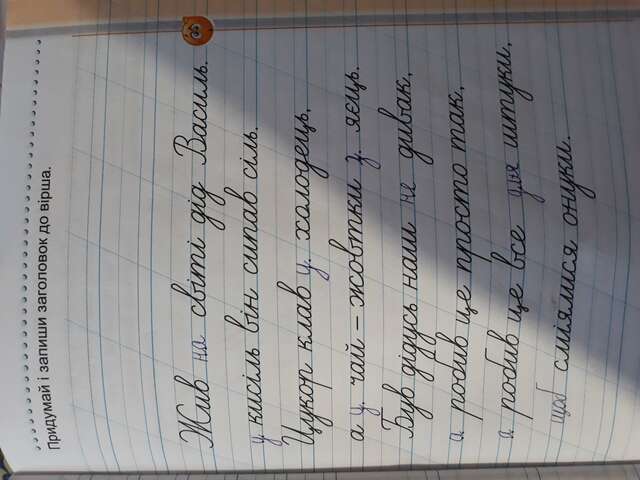 Придумай і запиши заголовок до вірша.
Жив на світі дід Василь.
у кисіль він сипав сіль.
Цукор клав у холодець,
а у чай – жовтки з яєць.
Був дідусь наш не дивак,
а робив це просто так,
а робив це все для штуки,
щоб сміялися онуки.